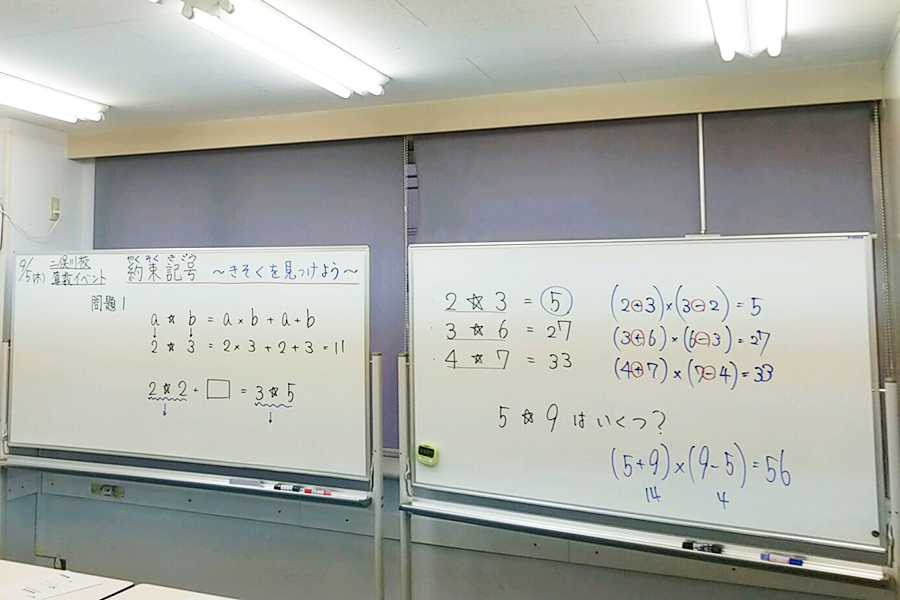 9/5(木) 二俣川校
算数イベント
やくそく きごう
約束記号 ~きそくを見つけよう~
問題1
a ☆ b = a × b + a + b
2 ☆ 3 = 2 × 3 + 2 + 3 = 11
2 ☆ 2 + □ = 3 ☆ 5
2 ☆ 3 = 5
3 ☆ 6 = 27
4 ☆ 7 = 33
(2+3)×(3-2)=5
(3+6)×(6-3)=27
(4+7)×(7-4)=33
5 ☆ 9 はいくつ?
(5+9)×(9-5)=56
14 4